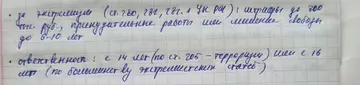 • за экстремизм (ст. 280, 282, 282.1 УК РФ): штрафы до 700
тыс. руб., принудительные работы или лишение свободы
до 5-10 лет
• ответственность: с 14 лет (по ст. 205 – терроризм) или с 16
лет (по большинству экстремистских статей)